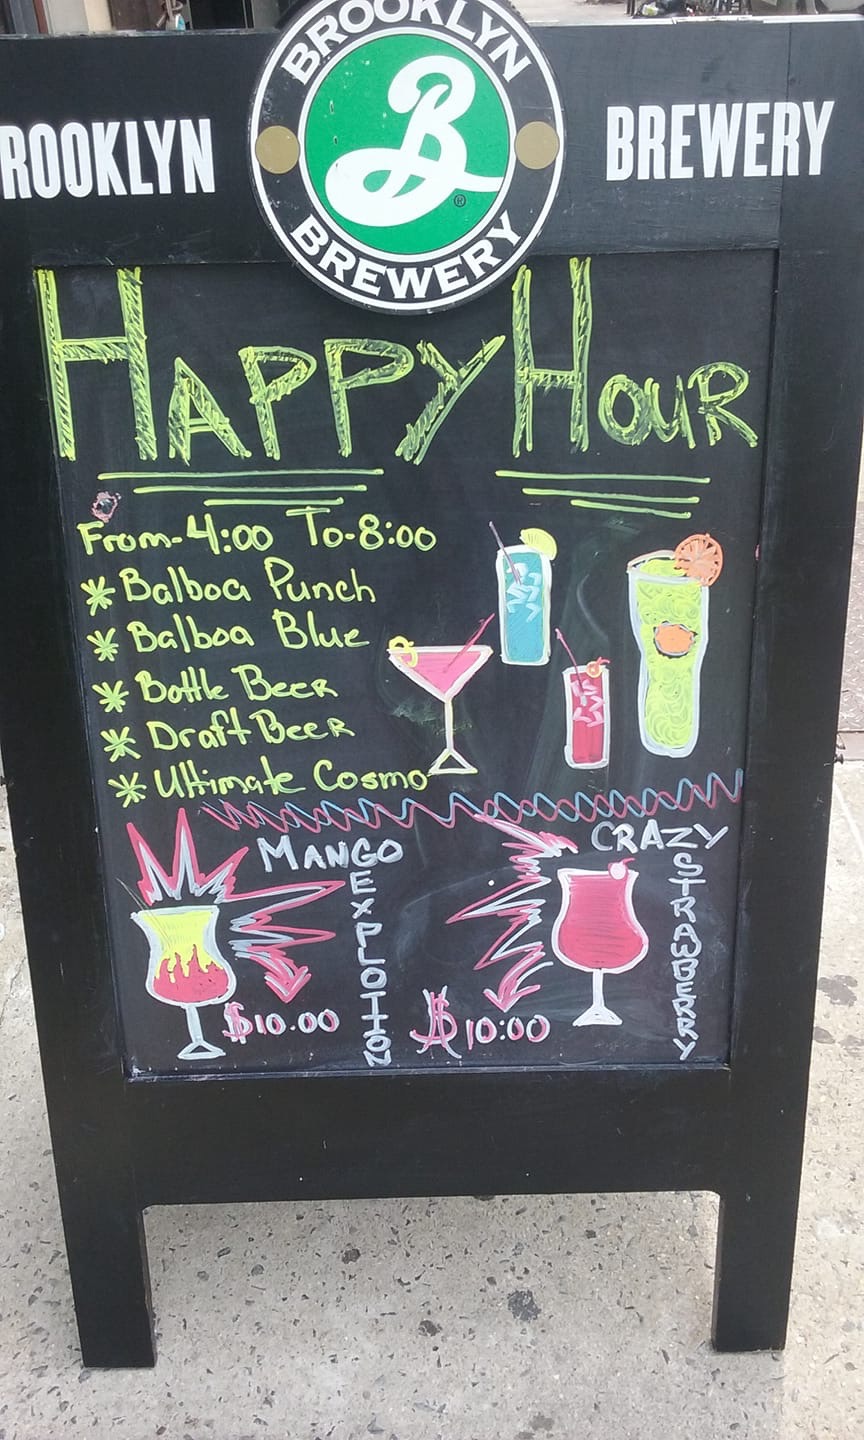 BROOKLYN
BREWERY
ROOKLYN
BREWERY
B
®
HAPPY HOUR
From-4:00 To-8:00
* Balboa Punch
* Balboa Blue
* Bottle Beer
* Draft Beer
* Ultimate Cosmo
MANGO
EXPLOTION
$10.00
CRAZY
STRAWBERRY
$10:00